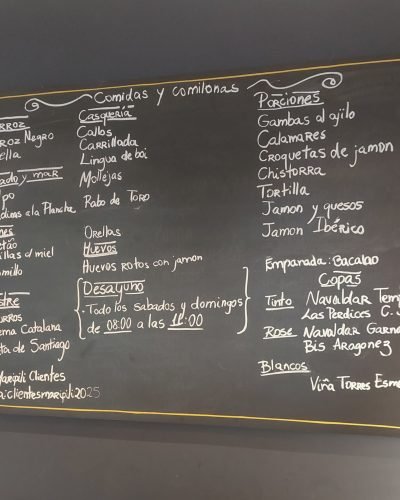 Comidas y comilonas
ROZ Negro
Pescado y mar
a la Plancha
al miel
Crema Catalana
Tarta de Santiago
Maripili Clientes
clientesmaripili2025
Casquería
Callos
Carrillada
Lingua de boi
Mollejas
Rabo de Toro
Orellas
Huevos
Huevos rotos con jamon
Desayuno
Todo los sabados y domingos
de 08:00 a las 11:00
Porciones
Gambas al ajilo
Calamares
Croquetas de jamon
Chistorra
Tortilla
Jamon y quesos
Jamon Ibérico
Empanada: Bacalao
Copas
Tinto Navaldar Temp
Las Perdices C.S
Rose Navaldar Garna
Bis Aragonez
Blancos
Viña Torres Esme